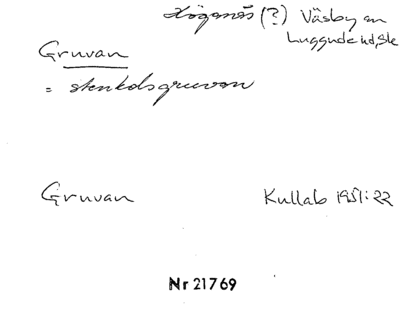 Höganäs (?) Väsby sn
Luggude hd, Sk
Gruvan
= stenkolsgruvan
Gruvan
Kullab 1951:22
Nr 21769